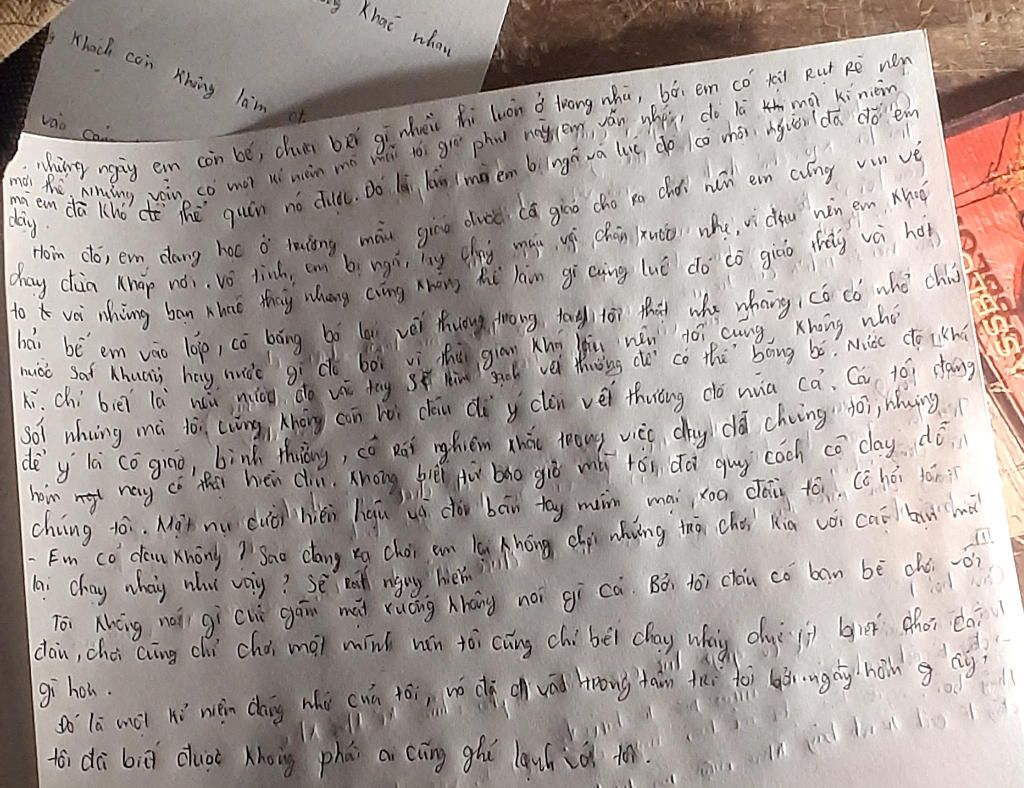 Khác nhau
Khách còn không làm
vào
những ngày em còn bé, chưa biết gì nhiều thì luôn ở trong nhà, bởi em có rụt rè nên
mới thế. Nhưng vẫn có một kỉ niệm mà mãi tới giờ phút này, em vẫn nhớ, đó là một kỉ niệm
mà em đã khó để thể quên nó được. Đó là lần mà em bị ngã và lúc đó có một người đã đỡ em
dây.
Hôm đó, em đang học ở trường mẫu giáo được cô giáo cho ra chơi nên em cũng vui vẻ
chạy đùa khắp nơi. vô tình, em bị ngã, tay chảy máu và chân xước nhẹ, vì đau nên em khóc
to và những bạn khác thấy nhưng cũng không thể làm gì cùng lúc đó cô giáo thấy và hớt
hải bế em vào lớp, cô băng bó lại vết thương trong tay tôi thật nhẹ nhàng, cô có nhỏ chút
nước sát khuẩn hay nước gì đó bởi vì thời gian khá lâu nên tôi cũng không nhớ
kĩ. chỉ biết là nếu nước đó vào tay sẽ làm sạch vết thương để có thể băng bó. Nước đó khá
sót nhưng mà tôi cũng không còn hơi đâu để ý đến vết thương đó nữa cả. Cái tôi đang
để ý là cô giáo, bình thường, cô rất nghiêm khắc trong việc dạy dỗ chúng tôi, nhưng
hôm nay cô thật hiền dịu. Không biết từ bao giờ mà tôi đã quý cách cô dạy dỗ
chúng tôi. Một nụ cười hiền hậu và đôi bàn tay mềm mại xoa đầu tôi. Cô hỏi tôi:
- Em có đau không? Sao đang ra chơi em lại không chơi những trò chơi kia với các bạn mà
lại chạy nhảy như vậy? Sẽ rất nguy hiểm
Tôi không nói gì chỉ gằm mặt xuống không nói gì cả. Bởi tôi đâu có bạn bè chơi với
đâu, chơi cũng chỉ chơi một mình nên tôi cũng chỉ biết chạy nhảy chứ biết chơi cái
gì hơn.
Đó là một kỉ niệm đáng nhớ của tôi, nó đã đi vào trong tâm trí tôi bởi ngày hôm ấy,
tôi đã biết được không phải ai cũng ghẻ lạnh với tôi.